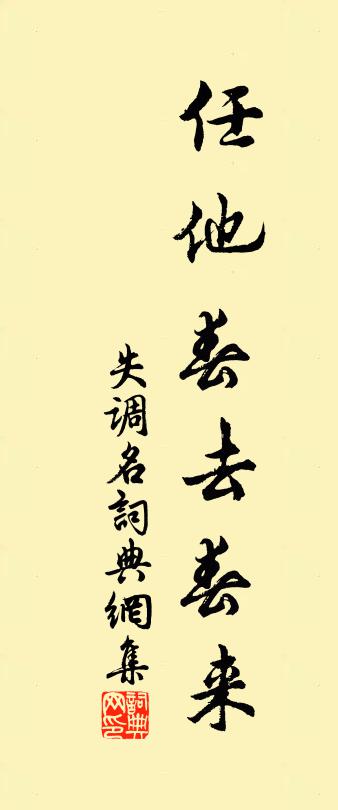 任他春去春来
失调名詞典網集
詞典网印